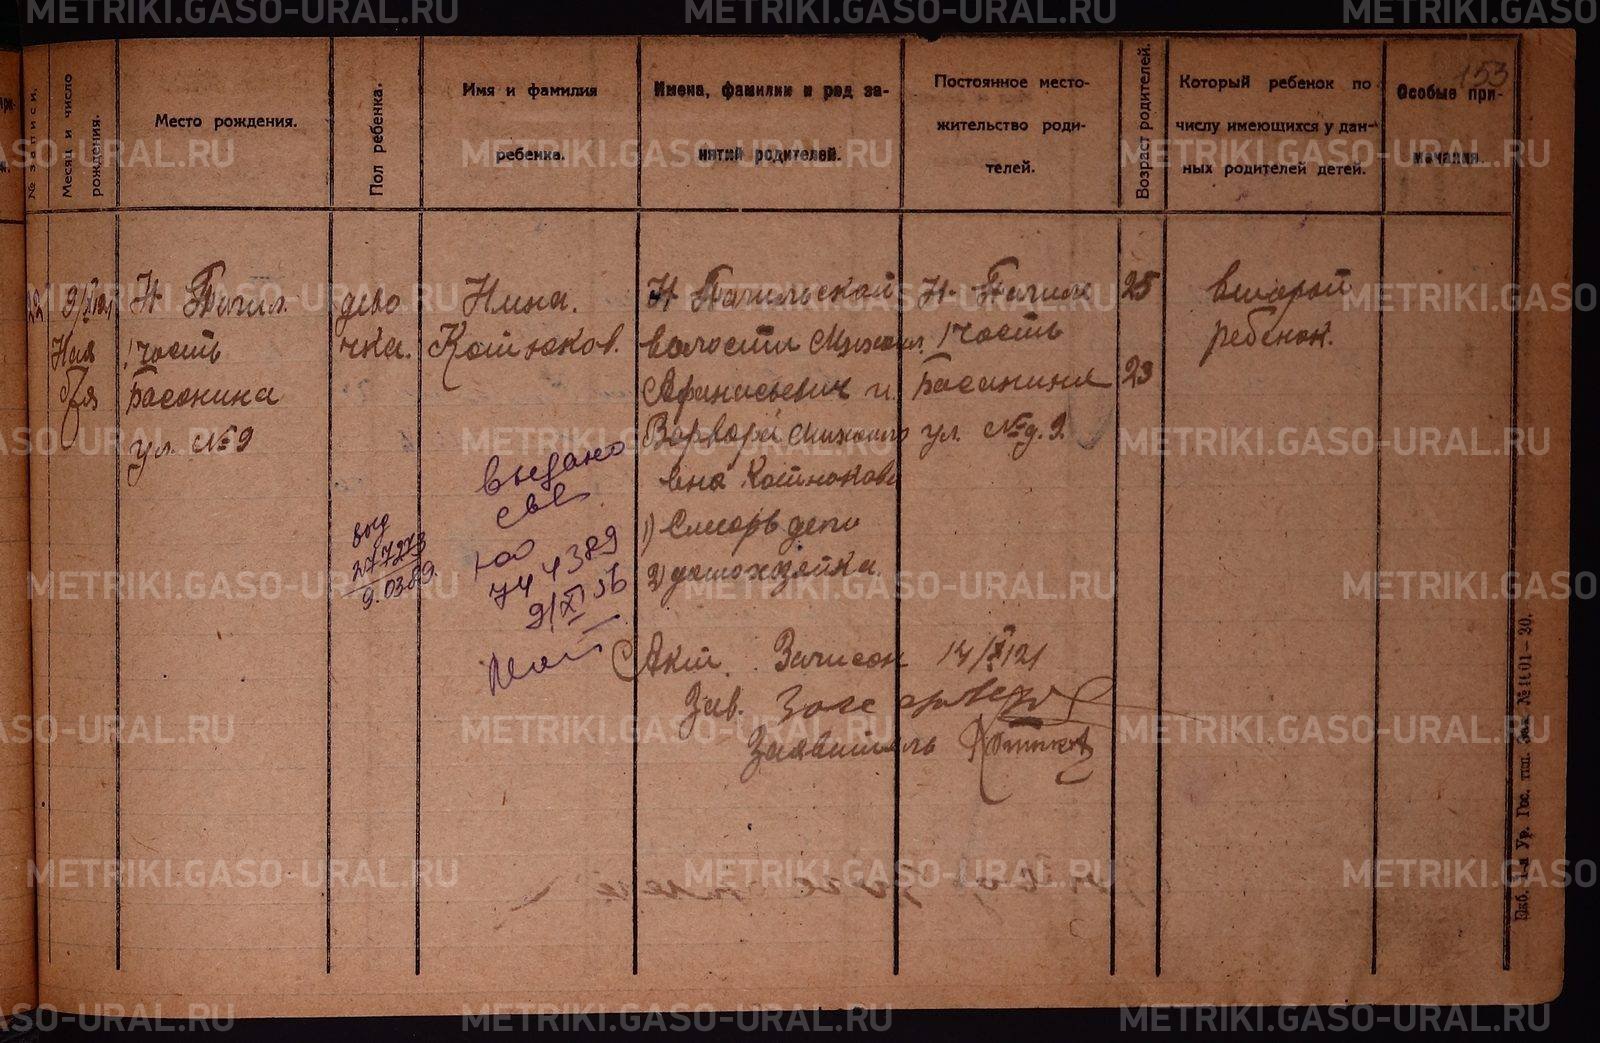 153
№ записи.
Месяц и число рождения.
Место рождения.
Пол ребенка.
Имя и фамилия
ребенка.
Имена, фамилии и род за-
нятий родителей.
Постоянное место-
жительство роди-
телей.
Возраст родителей.
Который ребенок по
числу имеющихся у дан-
ных родителей детей.
Особые при-
мечания.
22
Ноя
бря
Н Тагил.
1 часть
Басанина
ул. №9
дево
чка.
Нина.
Котюков.
Н Тагильской
волости Михаил
Афанасьевич и
Варвара Михайло
вна Котюкова
1) Слесарь депо
2) домохозяйка.
Н Тагил
1 часть
Басанина
ул. №д. 9.
25
23
второй
ребенок.
выдано
св
ЮО
744389
9/XI 56
выд
277273
9.03.89.
Акт. Записан 14/XI 21
Зав. Загс
Заявитель
Екб. 1-я Ур. Гос. тип. Зак. № 1101–20.
METRIKI.GASO-URAL.RU